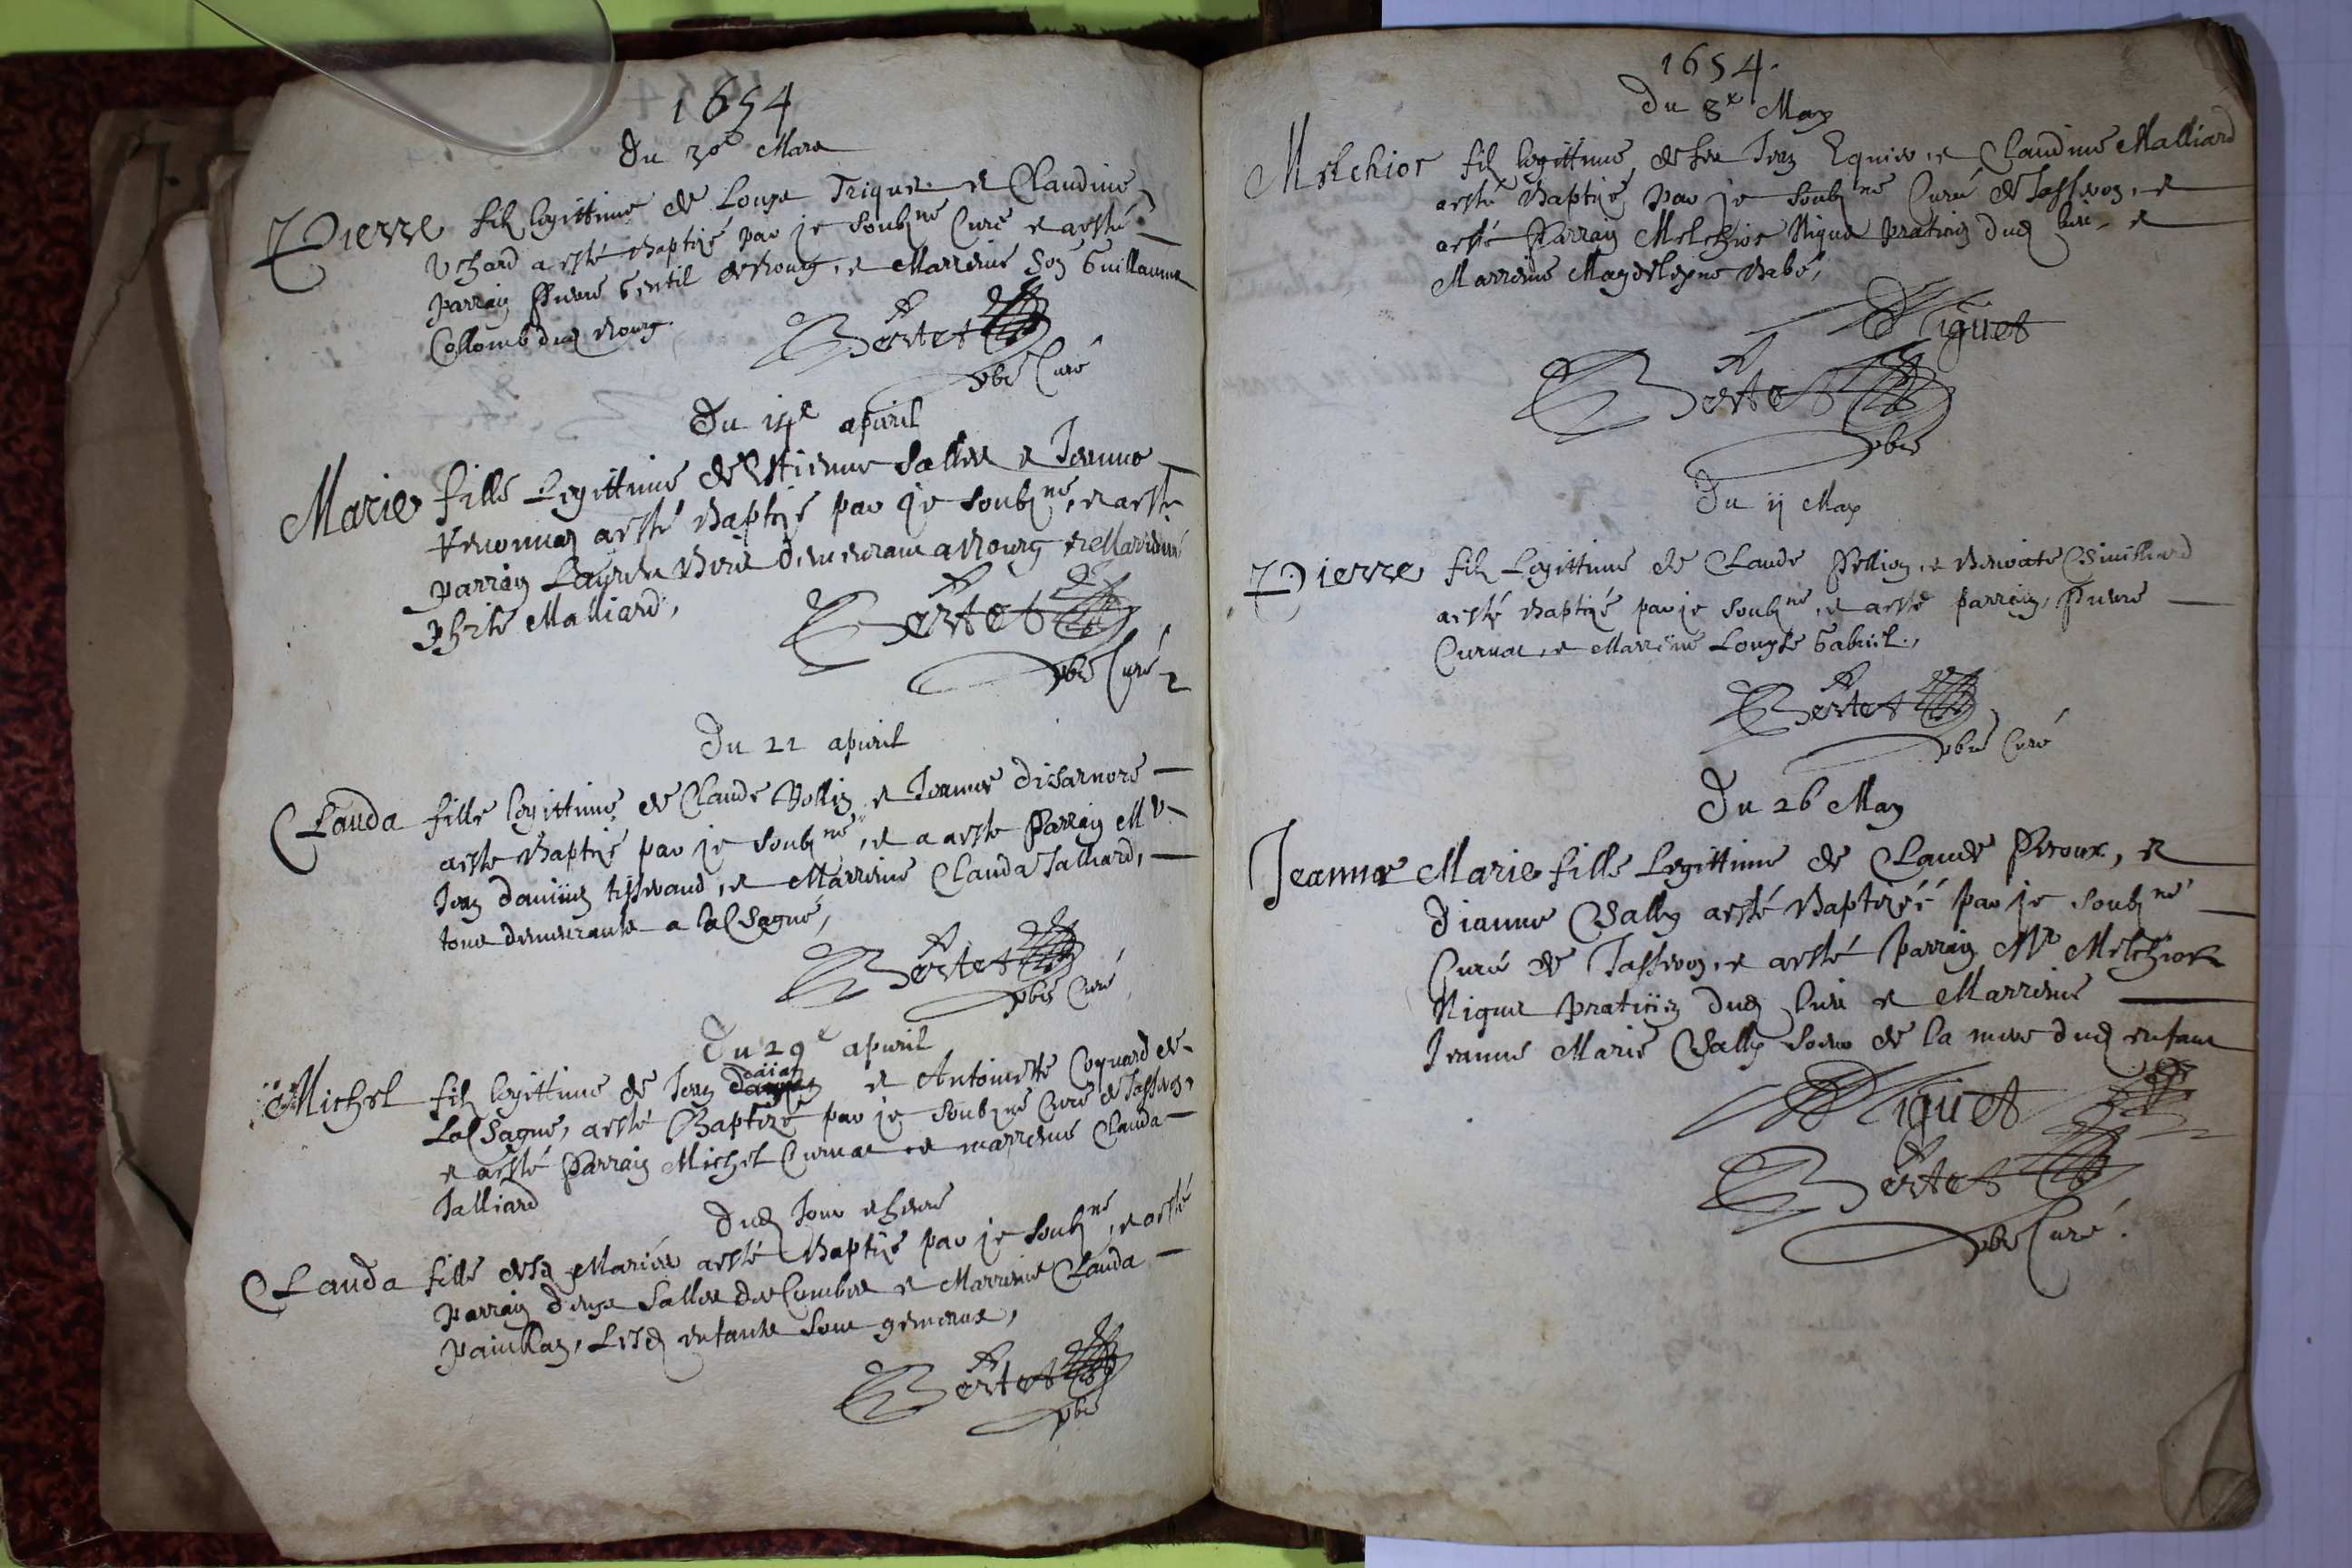 1654
Du 30e Mars
Pierre filz legittime de Louys Triquet et Claudine
Vchard a esté Baptizé par je soubzne Curé et a esté
parrain Pierre Gentil de Bourg, et Marreine Son Guillaume
Collomb dud Bourg.
Bertet
pbre Curé
Du 14e apuril
Marie fille Legittime de Estienne Sallex et Jeanne
a esté Baptizé par je soubzne, et a esté
parrain demeurant a Bourg et Marreine
Malliard,
Bertet
pbre Curé
Du 22 apuril
Clauda fille legittime de Claude Vollin et Jeanne
a esté Baptizé par je soubzne, et a esté Parrain
Jean tisserand, et Marreine Clauda Jalliard,
tous demeurants a
Bertet
pbre Curé
Du 29e apuril
Michel filz legittime de Jean et Antoinette Coquard de
a esté Baptizé par je soubzne Curé de Jasseron,
et a esté Parrain Michel Curnat et marreine Clauda
Jalliard
Dud Jour et heure
Clauda fille desd Mariés a esté Baptizé par je soubzne, et a esté
Parrain Denys Sallex et Marreine Clauda
Lesd enfants sont gemeaux,
Bertet
pbre
1654.
Du 8e May
Melchior filz legittime de feu Jean et Claudine Malliard
a esté Baptizé par je soubzne Curé de Jasseron, et
a esté Parrain Melchior Niguet praticien dud lieu, et
Marreine Magdeleyne Babé,
Niguet
Bertet
pbre
Du ij May
Pierre filz Legittime de Claude Pellion, et Benoiste
a esté Baptizé par je soubzne, et a esté parrain, Pierre
Curnat, et Marreine Louyse Gabriel,
Bertet
pbre Curé
Du 26 May
Jeanne Marie fille Legittime de Claude Peroux, et
Dianne Bally a esté Baptizéé par je soubzne
Curé de Jasseron, et a esté Parrain Mr Melchior
Niguet praticien dud lieu et Marreine
Jeanne Marie Bally soeur de la mere dud enfant
Niguet
Bertet
pbre Curé.